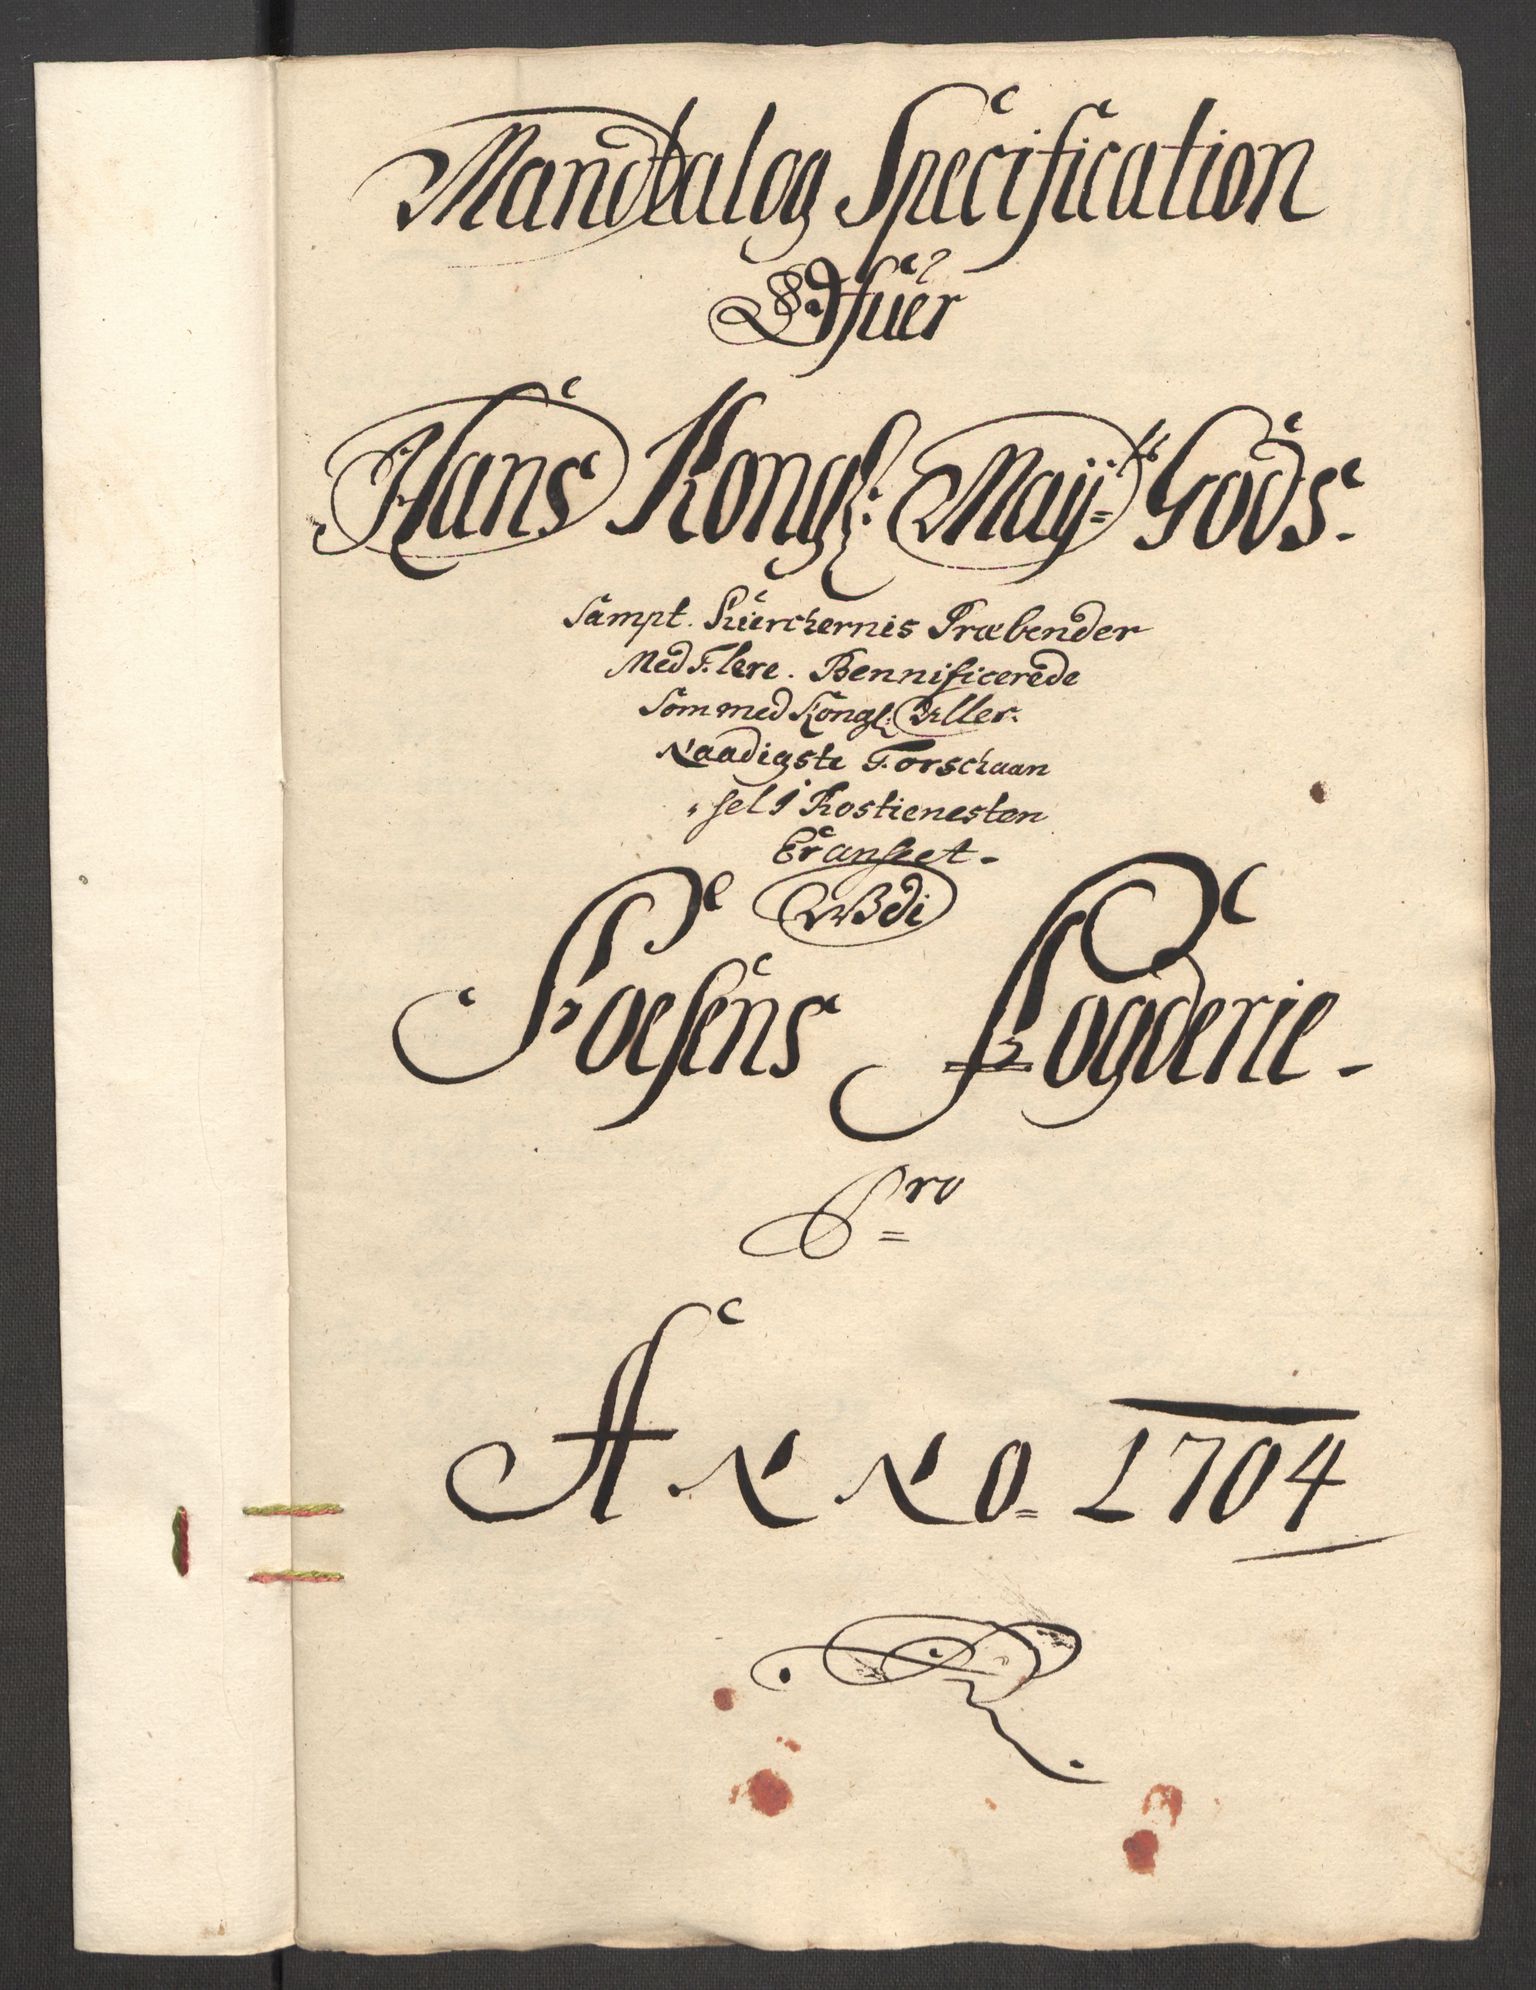 Mandtalog Specification
Ofuer
Hans Kongl: Maijts Gods.
Sampt. Kierchernis Præbender
Med Flere. Bennificerede
Som med Kongl: Aller.
Naadigste Forschaan
sel i Rostienesten
Er anseet.
Udi
Fosens Fogderie.
Pro
ANNO 1704